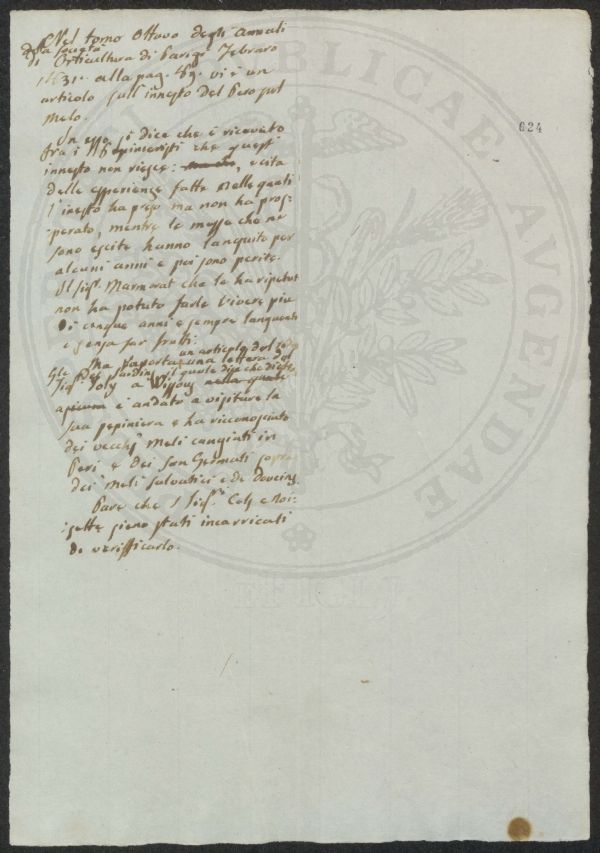 Nel tomo Ottavo degli Annali
della Società
di Orticultura di Parigi Febraro
1831. alla pag. 69. vi è un
articolo sull'innesto del Pero sul
Melo.
In esso si dice che è ricevuto
fra i Pepinieristi che quest'
innesto non riesce: , e cita
delle esperienze fatte nelle quali
l'inesto ha preso ma non ha pros-
perato, mentre le messe che ne
sono escite hanno languito per
alcuni anni e poi sono perite.
Il Sigr. che le ha ripetute
non ha potuto farle vivere più
di cinque anni e sempre languenti
e senza far frutti.
un articolo del
Ma raporta una lettera del
il quale dice che
Sigr. a nella quale
è andato a visitare la
sua pepiniera e ha riconosciuto
dei vecchj Meli cangiati in
Peri e dei San Germati sopra
dei Meli salvatici e de Doucins
Pare che i Sigri. Cels e Noi-
sette sieno stati incarricati
di verifficarlo.
624
REI PUBLICAE AUGENDAE